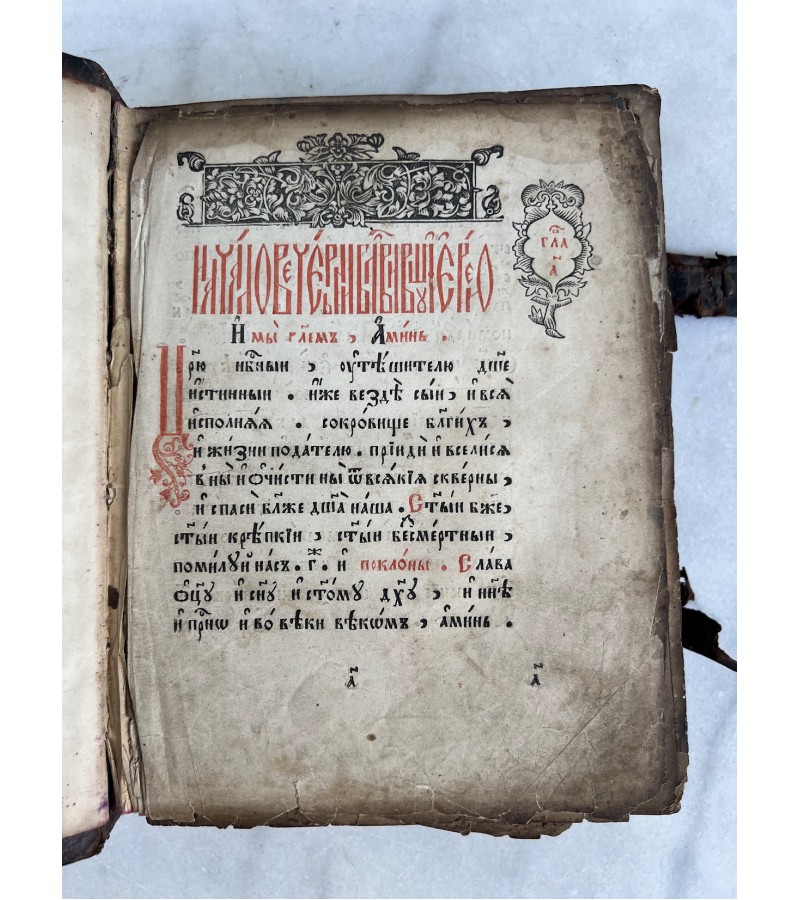 И мы гл҃емъ , Аминь .
Цр҃ю нбⷭ҇ныи , ᲂу҆тѣ́шителю дш҃е
и҆́стинныи . и҆́же вездѣ̀ сы́и , и҆ всѧ̀
и҆сполнѧ́ѧ . сокро́вище бл҃ги́хъ ,
и҆ жи́зни пода́телю . прїидѝ и҆ всели́сѧ
в ны̀ и҆ ѡ҆чи́сти ны̀ ѿ всѧ́кїѧ скве́рны ,
и҆ спасѝ бл҃же дш҃а на́ша . Ст҃ы́и бж҃е
ст҃ы́и крѣ́пкїи , ст҃ы́и бесме́ртныи ,
поми́луй на́съ . г҃ . и҆ покло́ны . Сла́ва
ѻ҆ц҃у̀ и҆ сн҃у и҆ ст҃о́му дх҃у , и҆ нн҃ѣ
и҆ прⷭ҇нѡ и҆ во́ вѣки вѣкѡ́мъ , а҆ми́нь .
гла
а҃
а҃ а҃